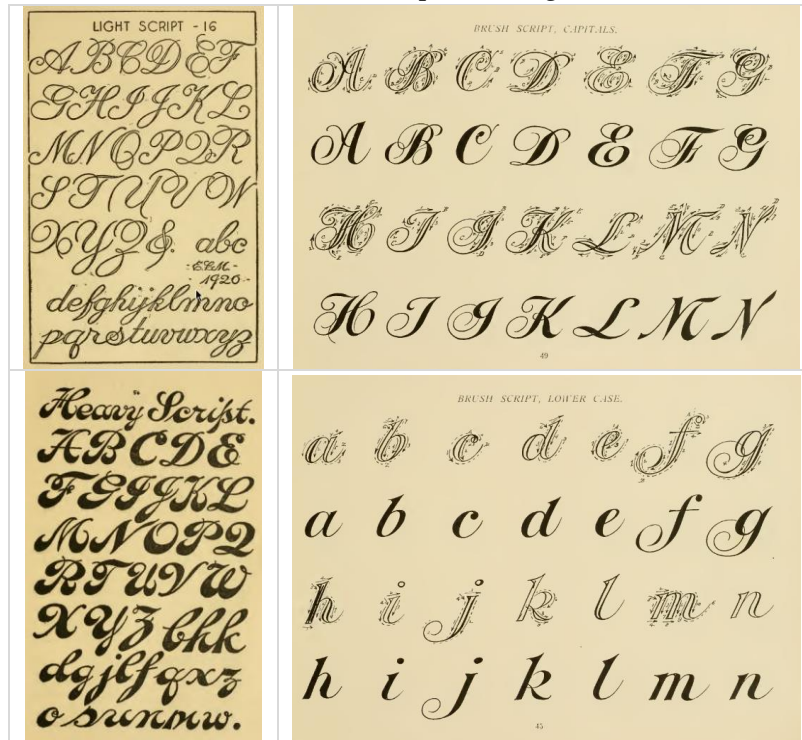 LIGHT SCRIPT - 16
A B C D E F
G H I J K L
M N O P Q R
S T U V W
X Y Z &. abc
- E.C.M. -
- 1920 -
defghijklmno
pqrstuvwxyz
BRUSH SCRIPT, CAPITALS.
A B C D E F G
A B C D E F G
H I J K L M N
H I J K L M N
49
Heavy Script.
A B C D E
F G I J K L
M N O P Q
R T U V W
X Y Z b h k
d g j l f q x z
o s u n m w .
BRUSH SCRIPT, LOWER CASE.
a b c d e f g
a b c d e f g
h i j k l m n
h i j k l m n
45